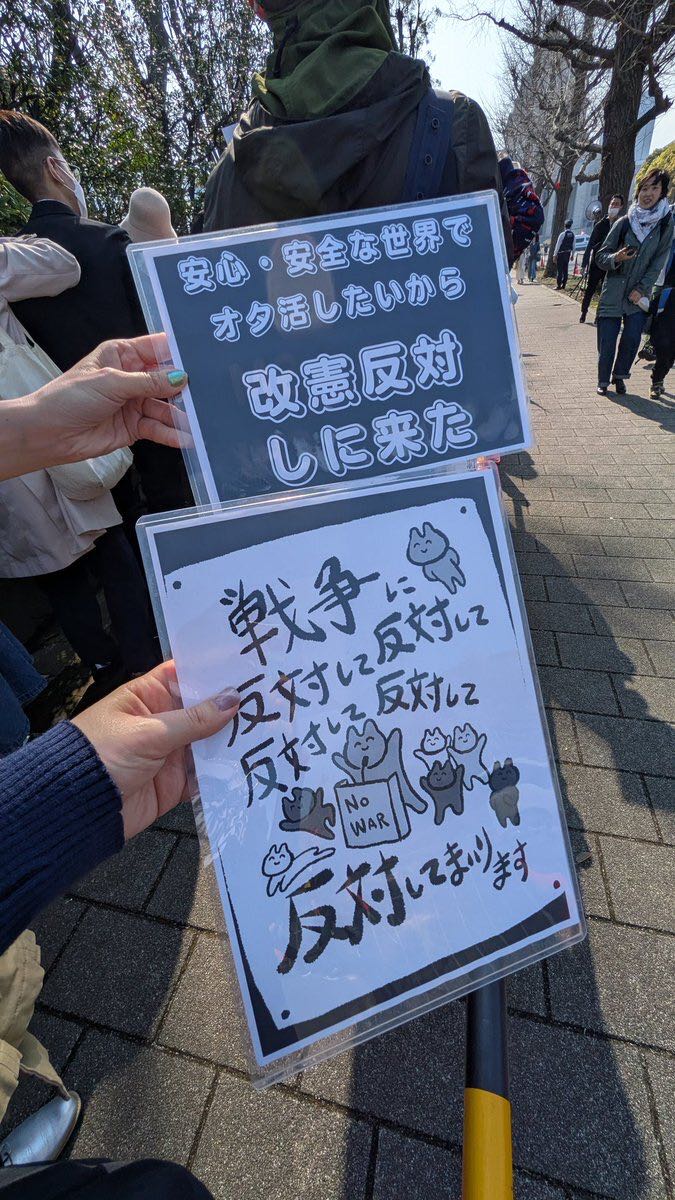 安心・安全な世界で
オタ活したいから
改憲反対
しに来た
戦争に
反対して反対して
反対して反対して
NO
WAR
反対してまいります